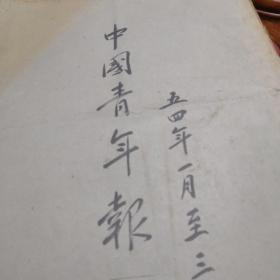 中國青年報
五四年一月至三